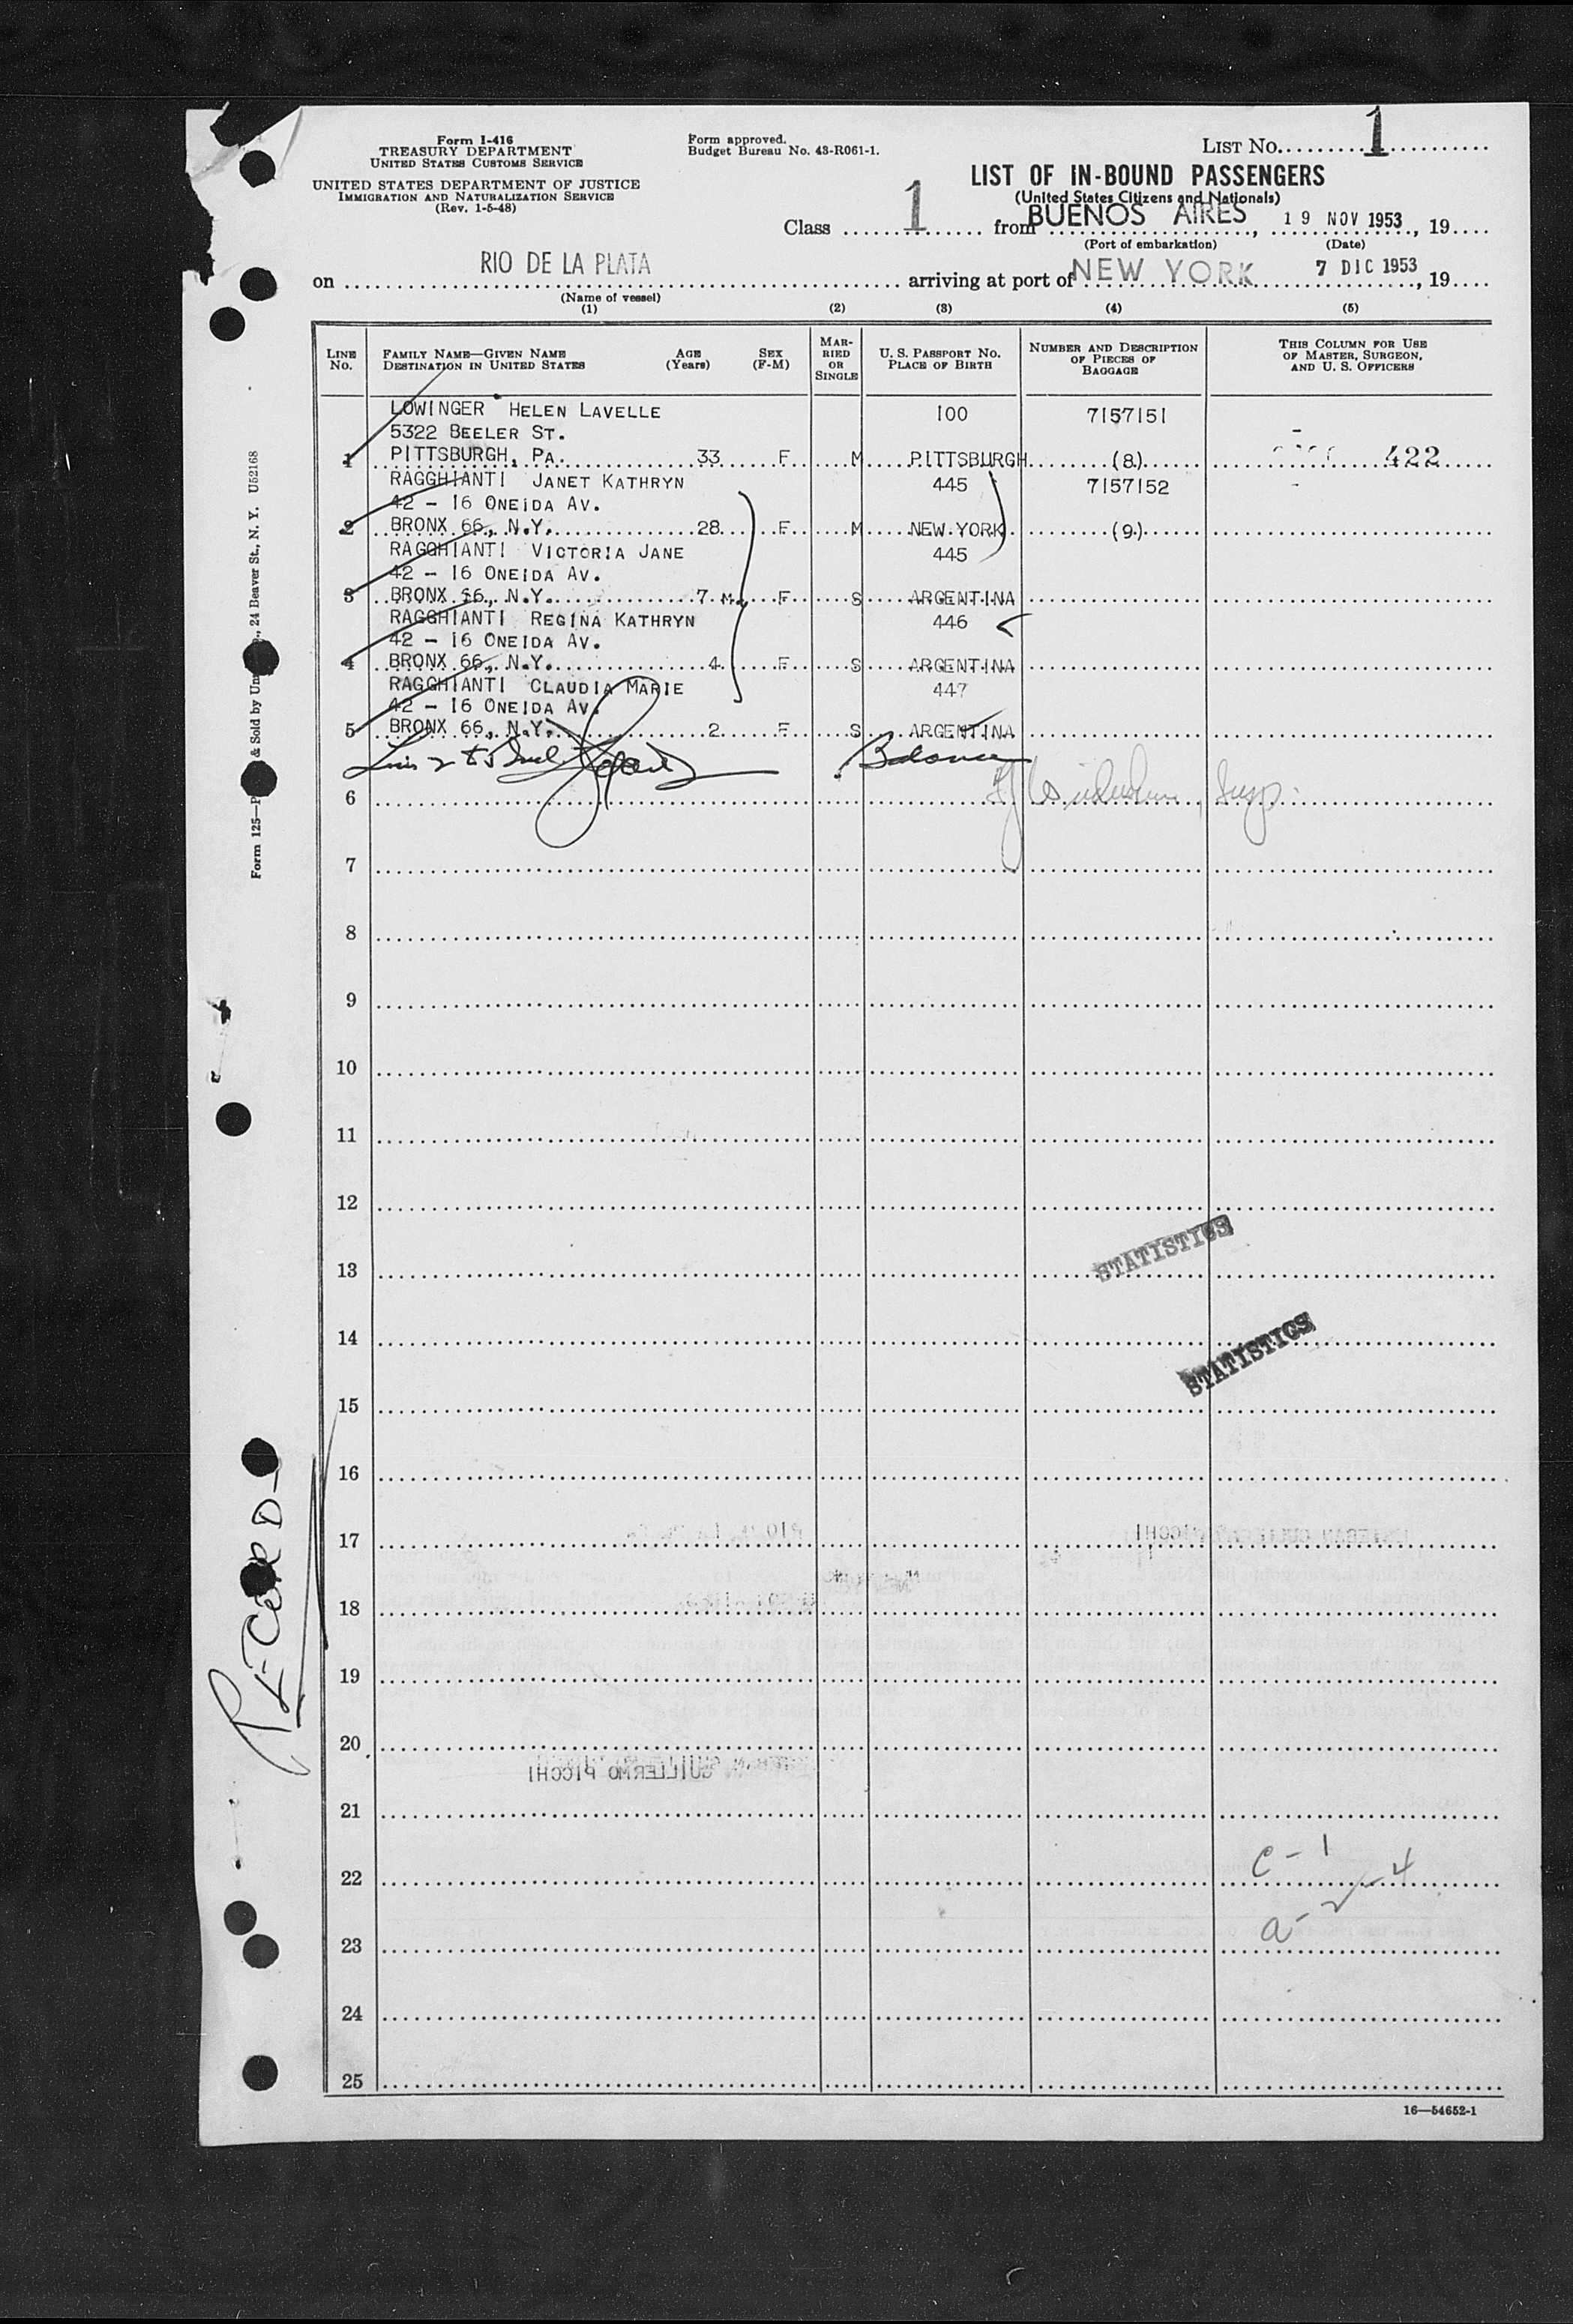 Form I-416
TREASURY DEPARTMENT
UNITED STATES CUSTOMS SERVICE
UNITED STATES DEPARTMENT OF JUSTICE
IMMIGRATION AND NATURALIZATION SERVICE
(Rev. 1-5-48)
Form approved.
Budget Bureau No. 43-R061-1.
LIST No. 1
LIST OF IN-BOUND PASSENGERS
(United States Citizens and Nationals)
Class 1 from BUENOS AIRES, 19 NOV 1953, 19
(Port of embarkation) (Date)
on RIO DE LA PLATA arriving at port of NEW YORK 7 DIC 1953, 19
(Name of vessel)
(1) (2) (3) (4) (5)
LINE No.
FAMILY NAME—GIVEN NAME
DESTINATION IN UNITED STATES
AGE (Years)
SEX (F-M)
MARRIED OR SINGLE
U. S. PASSPORT NO.
PLACE OF BIRTH
NUMBER AND DESCRIPTION OF PIECES OF BAGGAGE
THIS COLUMN FOR USE OF MASTER, SURGEON, AND U. S. OFFICERS
LOWINGER HELEN LAVELLE 100 7157151
5322 BEELER ST.
1 PITTSBURGH, PA. 33 F M PITTSBURGH (8) 422
RAGGHIANTI JANET KATHRYN 445 7157152
42 - 16 ONEIDA AV.
2 BRONX 66, N.Y. 28 F M NEW YORK (9)
RAGGHIANTI VICTORIA JANE 445
42 - 16 ONEIDA AV.
3 BRONX 66, N.Y. 7 M. F S ARGENTINA
RAGGHIANTI REGINA KATHRYN 446
42 - 16 ONEIDA AV.
4 BRONX 66, N.Y. 4 F S ARGENTINA
RAGGHIANTI CLAUDIA MARIE 447
42 - 16 ONEIDA AV.
5 BRONX 66, N.Y. 2 F S ARGENTINA
6
7
8
9
10
11
12
STATISTICS
13
14
STATISTICS
15
16
17
18
19
20
GUILLERMO PICCHI
21
C - 1
22
4
a - 2
23
24
25
16—54652-1
RECORD
Form 125—P & Sold by Un , 24 Beaver St., N. Y. U52168